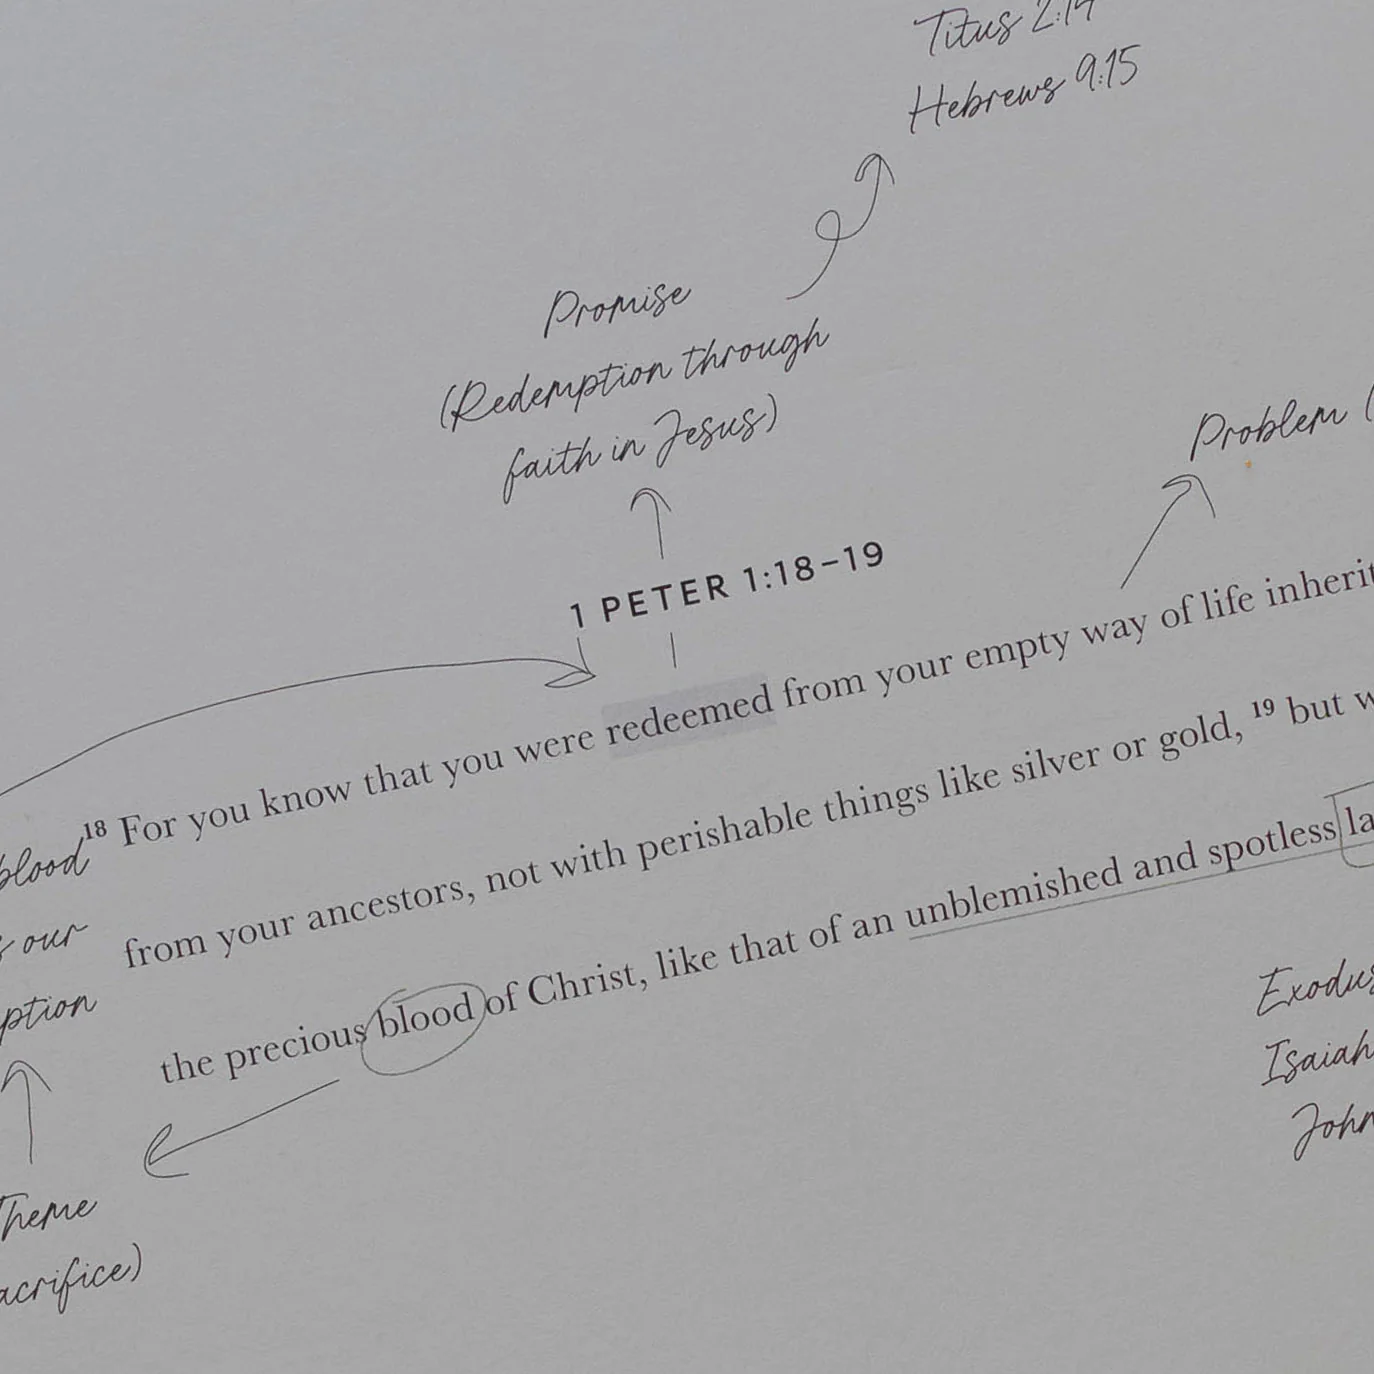 Titus 2:14
Hebrews 9:15
Promise
(Redemption through
faith in Jesus)
Problem (
1 PETER 1:18–19
18 For you know that you were redeemed from your empty way of life inherit
from your ancestors, not with perishable things like silver or gold, 19 but w
the precious blood of Christ, like that of an unblemished and spotless la
blood
our
ption
Theme
acrifice)
Exodus
Isaiah
John